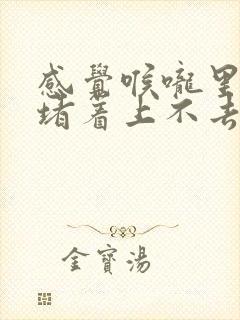 感覺喉嚨里
堵着上不去
金寶湯